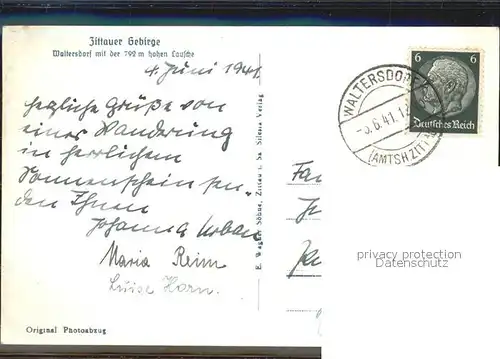 Zittauer Gebirge
Waltersdorf mit der 792 m hohen Lausche
4. Juni 1941
herzliche Grüße von
einer Wanderung
in herrlichem
Sonnenschein sen-
den Ihnen
Johanna Urban
Maria Reim
Luise Horn.
Original Photoabzug
E. Wagner Söhne, Zittau i. Sa. Verlag
6 6
Deutsches Reich
WALTERSDORF
-5.6.41.1
(AMTSH ZITT
privacy protection
Datenschutz